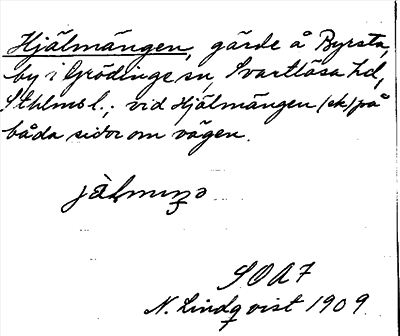 Hjälmängen, gärde å Byrsta
by i Grödinge sn, Svartlösa hd,
Sthlms l.; vid Hjälmängen (ek) på
båda sidor om vägen.
SOAF
N. Lindqvist 1909.